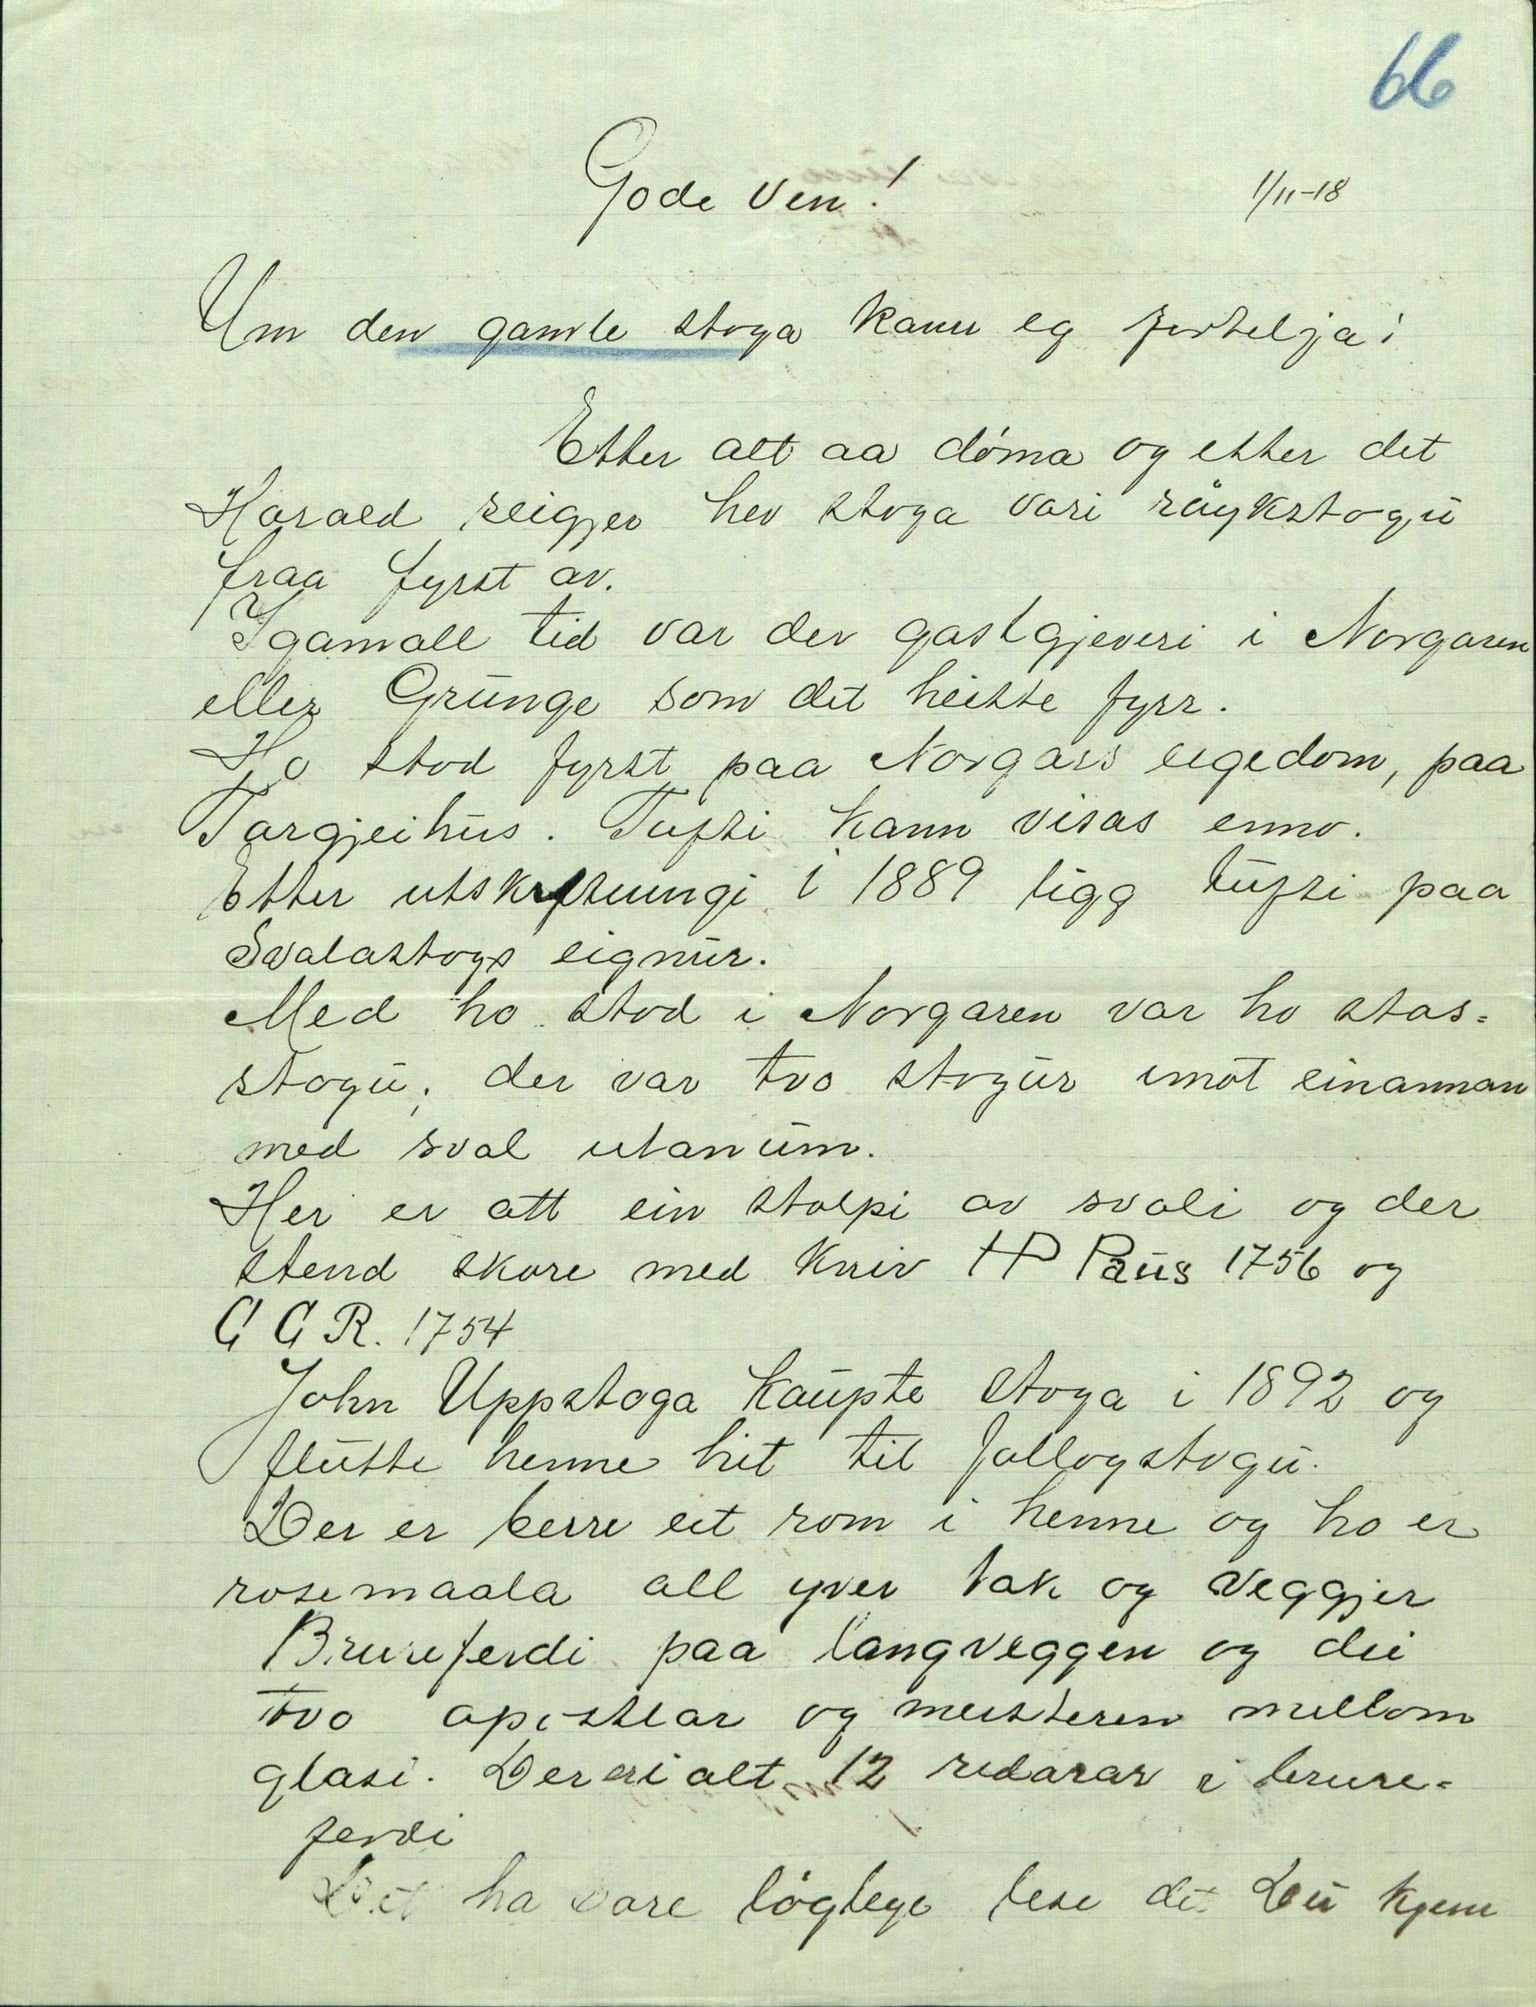 66
Gode ven!
1/11-18
Um den gamle stoga kann eg fortelja:
Etter alt aa döma og etter det
Harald seigjer hev stoga vori röykstogu
fraa fyrst av.
I gamall tid var der gastgjeveri i Norgaren
eller Grunge som det heitte fyrr.
Ho stod fyrst paa Norgars eigedom, paa
Targjeihus. Tufti kann visas enno.
Etter utskiftningi i 1889 ligg tufti paa
Svalastogs eignur.
Med ho stod i Norgaren var ho stas-
stogu; der var tvo stogur imot einannan
med sval utanum.
Her er att ein stolpi av svali og der
stend skore med kniv HP Paus 1756 og
G G R. 1754
John Uppstoga kaupte stoga i 1892 og
flutte henne hit til follogstogu.
Der er berre eit rom i henne og ho er
rosemaala all yver tak og veggjer
Brureferdi paa langveggen og dei
tvo apostlar og meisteren millom
glasi. Der er i alt 12 ridarar i brure-
ferdi
Det ha vore löglege lese det Du kjem